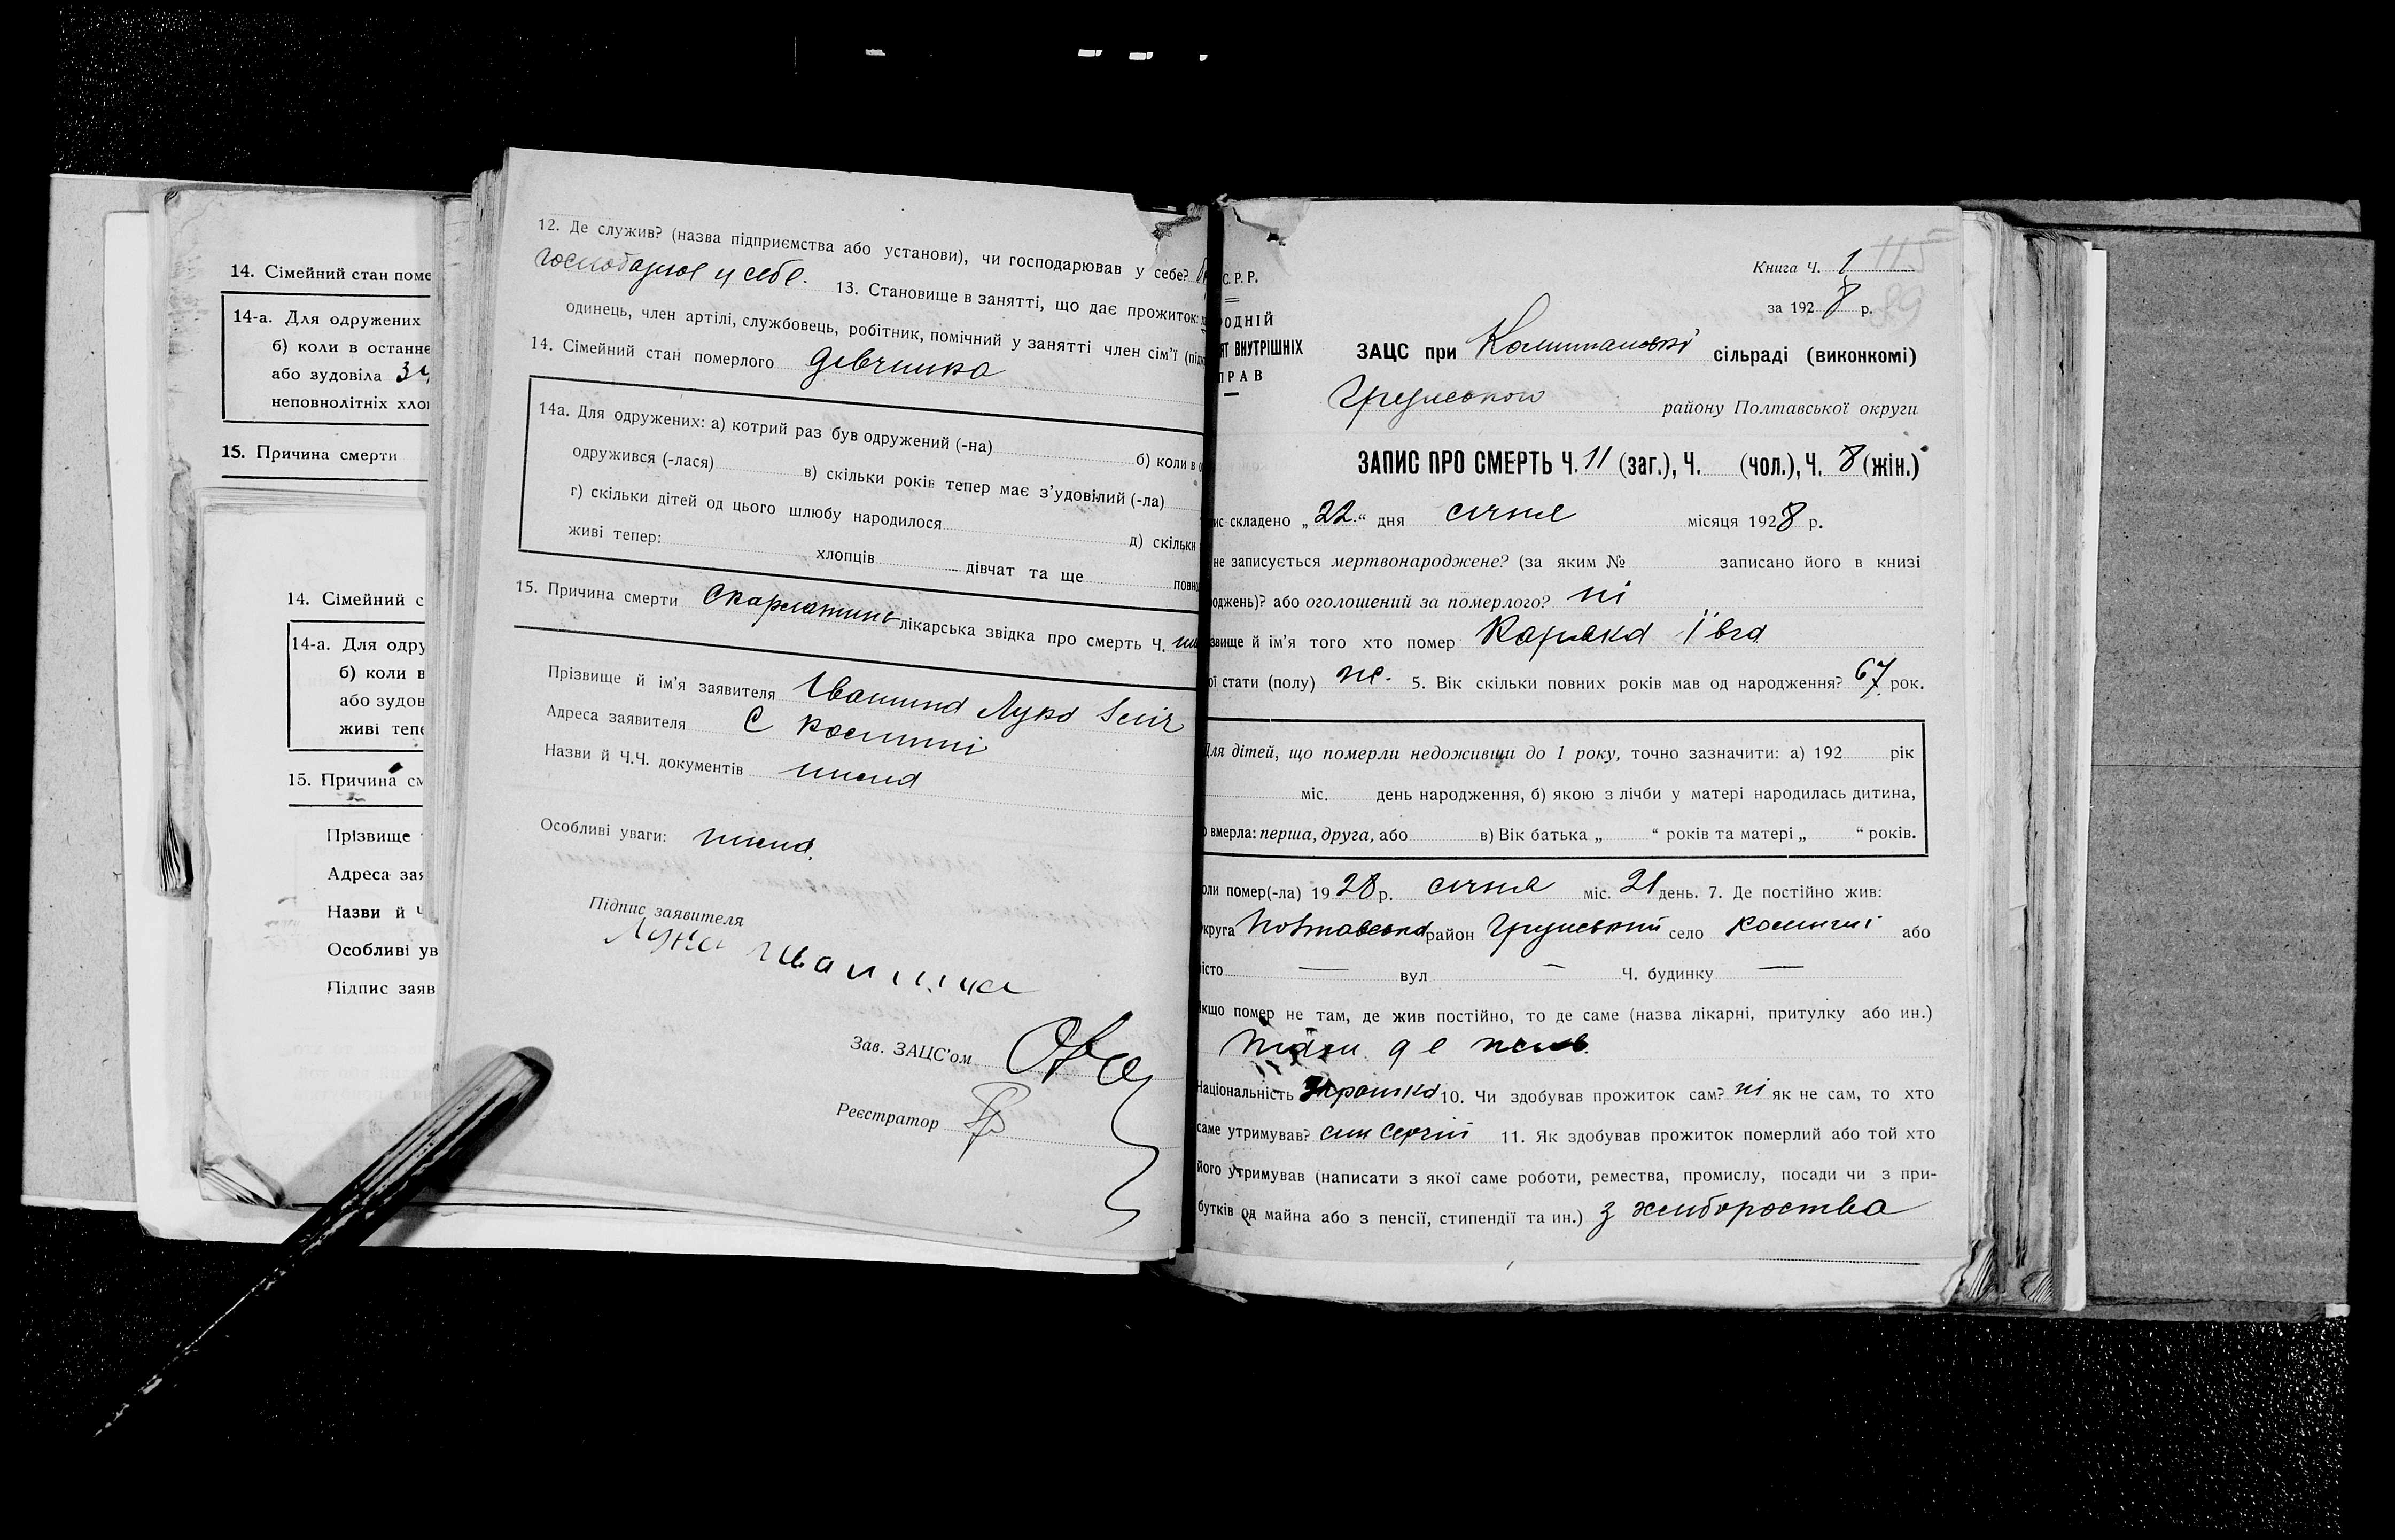 14. Сімейний стан поме
14-а. Для одружених
б) коли в останнє
або зудовіла
неповнолітніх хло
15. Причина смерти
14. Сімейний с
14-а. Для одру
б) коли в
або зудов
живі тепе
15. Причина см
Прізвище
Адреса зая
Назви й Ч
Особливі ув
Підпис заяв
12. Де служив? (назва підприємства або установи), чи господарював у себе?
господарює у себе. 13. Становище в занятті, що дає прожиток:
одинець, член артілі, службовець, робітник, помічний у занятті член сім'ї (під
14. Сімейний стан померлого дівчинка
14а. Для одружених: а) котрий раз був одружений (-на) б) коли в о
одружився (-лася) в) скільки років тепер має з'удовілий (-ла)
г) скільки дітей од цього шлюбу народилося д) скільки
живі тепер: хлопців дівчат та ще повно
15. Причина смерти скарлатина лікарська звідка про смерть Ч.
Прізвище й ім'я заявителя Івашина Лука
Адреса заявителя С Комиші
Назви й Ч.Ч. документів нема
Особливі уваги: нема.
Підпис заявителя
Лука Івашина
Зав. ЗАЦС'ом
Реєстратор
С.Р.Р.
РОДНІЙ
ЯТ ВНУТРІШНІХ
ПРАВ
Книга Ч. 1
115
за 1928 р.
89
ЗАЦС при сільраді (виконкомі)
Грунському району Полтавської округи
ЗАПИС ПРО СМЕРТЬ Ч. 11 (заг.), Ч. (чол.), Ч. 8 (жін.)
ис складено „22.“ дня січня місяця 1928 р.
не записується мертвонароджене? (за яким № записано його в книзі
оджень)? або оголошений за померлого? ні
звище й ім'я того хто помер Карлека Івга
ої стати (полу) ж. 5. Вік скільки повних років мав од народження? 67 рок.
Для дітей, що померли недоживши до 1 року, точно зазначити: а) 192 рік
міс. день народження, б) якою з лічби у матері народилась дитина,
о вмерла: перша, друга, або в) Вік батька „ “ років та матері „ “ років.
оли помер(-ла) 1928 р. січня міс. 21 день. 7. Де постійно жив:
круга Полтавська район Грунський село Комиші або
істо — вул — Ч. будинку —
Якщо помер не там, де жив постійно, то де саме (назва лікарні, притулку або ин.)
там де жив.
Національність Українка 10. Чи здобував прожиток сам? ні як не сам, то хто
саме утримував? син Сергій 11. Як здобував прожиток померлий або той хто
його утримував (написати з якої саме роботи, ремества, промислу, посади чи з при-
бутків од майна або з пенсії, стипендії та ин.) з хліборобства